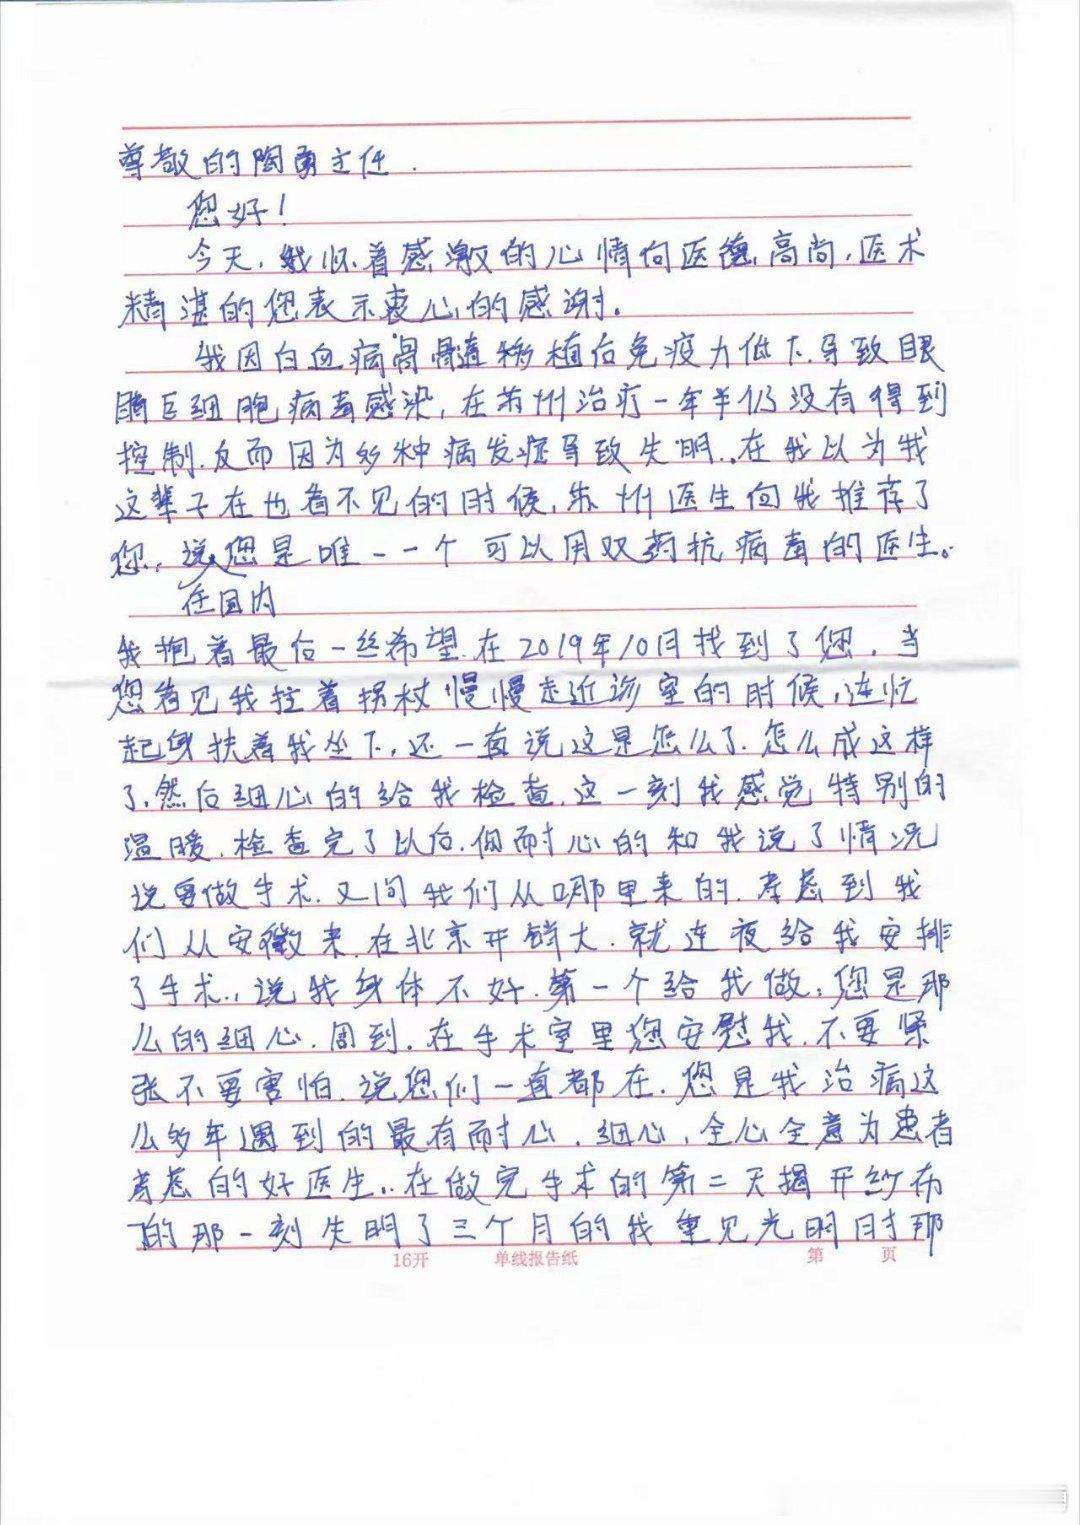 尊敬的陶勇主任.
您好!
今天,我怀着感激的心情向医德高尚,医术
精湛的您表示衷心的感谢。
我因白血病骨髓移植后免疫力低下.导致眼
睛巨细胞病毒感染,在苏州治疗一年半仍没有得到
控制.反而因为多种病发症导致失明..在我以为我
这辈子在也看不见的时候,苏州医生向我推荐了
您,说您是唯一一个可以用双药抗病毒的医生。
在国内
我抱着最后一丝希望.在2019年10月找到了您.当
您看见我拄着拐杖慢慢走近诊室的时候,连忙
起身扶着我坐下,还一直说这是怎么了.怎么成这样
了.然后细心的给我检查.这一刻我感觉特别的
温暖.检查完了以后.您耐心的和我说了情况
说要做手术.又问我们从哪里来的.考虑到我
们从安徽来.在北京开销大.就连夜给我安排
了手术.,说我身体不好.第一个给我做;您是那
么的细心.周到.在手术室里您安慰我.不要紧
张不要害怕.说您们一直都在.您是我治病这
么多年遇到的最有耐心.细心,全心全意为患者
考虑的好医生..在做完手术的第二天揭开纱布
的那一刻失明了三个月的我重见光明时那
16开 单线报告纸 第 页